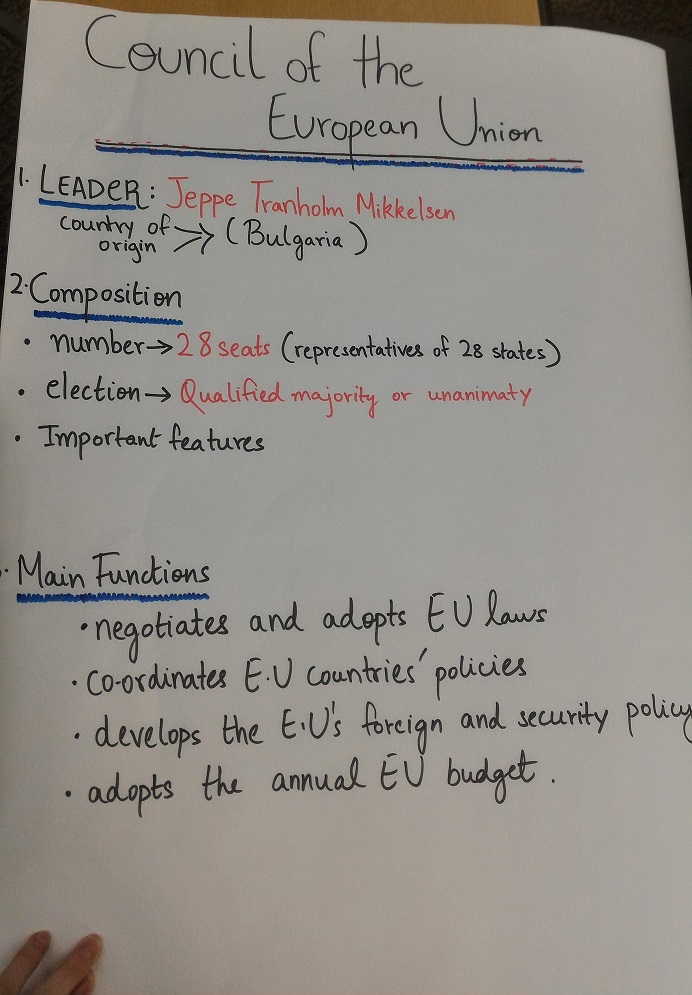 Council of the
European Union
1. LEADER: Jeppe Tranholm Mikkelsen
country of
origin => (Bulgaria)
2. Composition
• number → 28 seats (representatives of 28 states)
• election → Qualified majority or unanimaty
• Important features
. Main Functions
• negotiates and adopts EU laws
• co-ordinates E.U countries' policies
• develops the E.U's foreign and security policy
• adopts the annual EU budget.